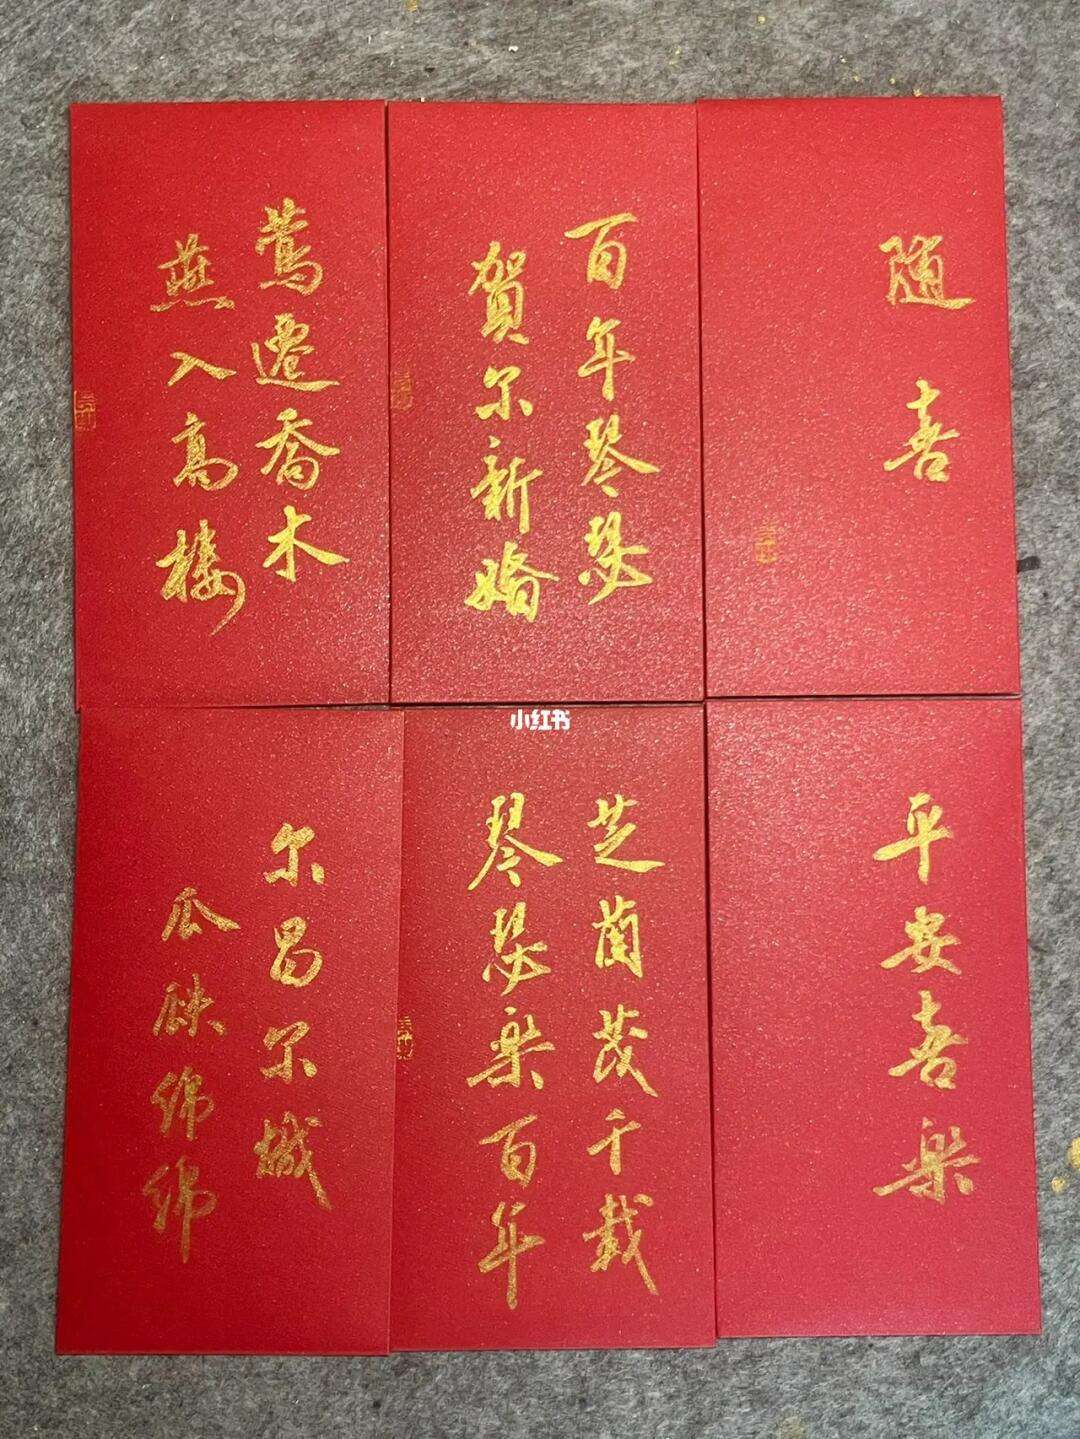 鶯遷喬木
燕入高樓
百年琴瑟
賀尔新婚
随喜
尔昌尔熾
瓜瓞綿綿
芝蘭茂千載
琴瑟樂百年
平安喜樂
小红书